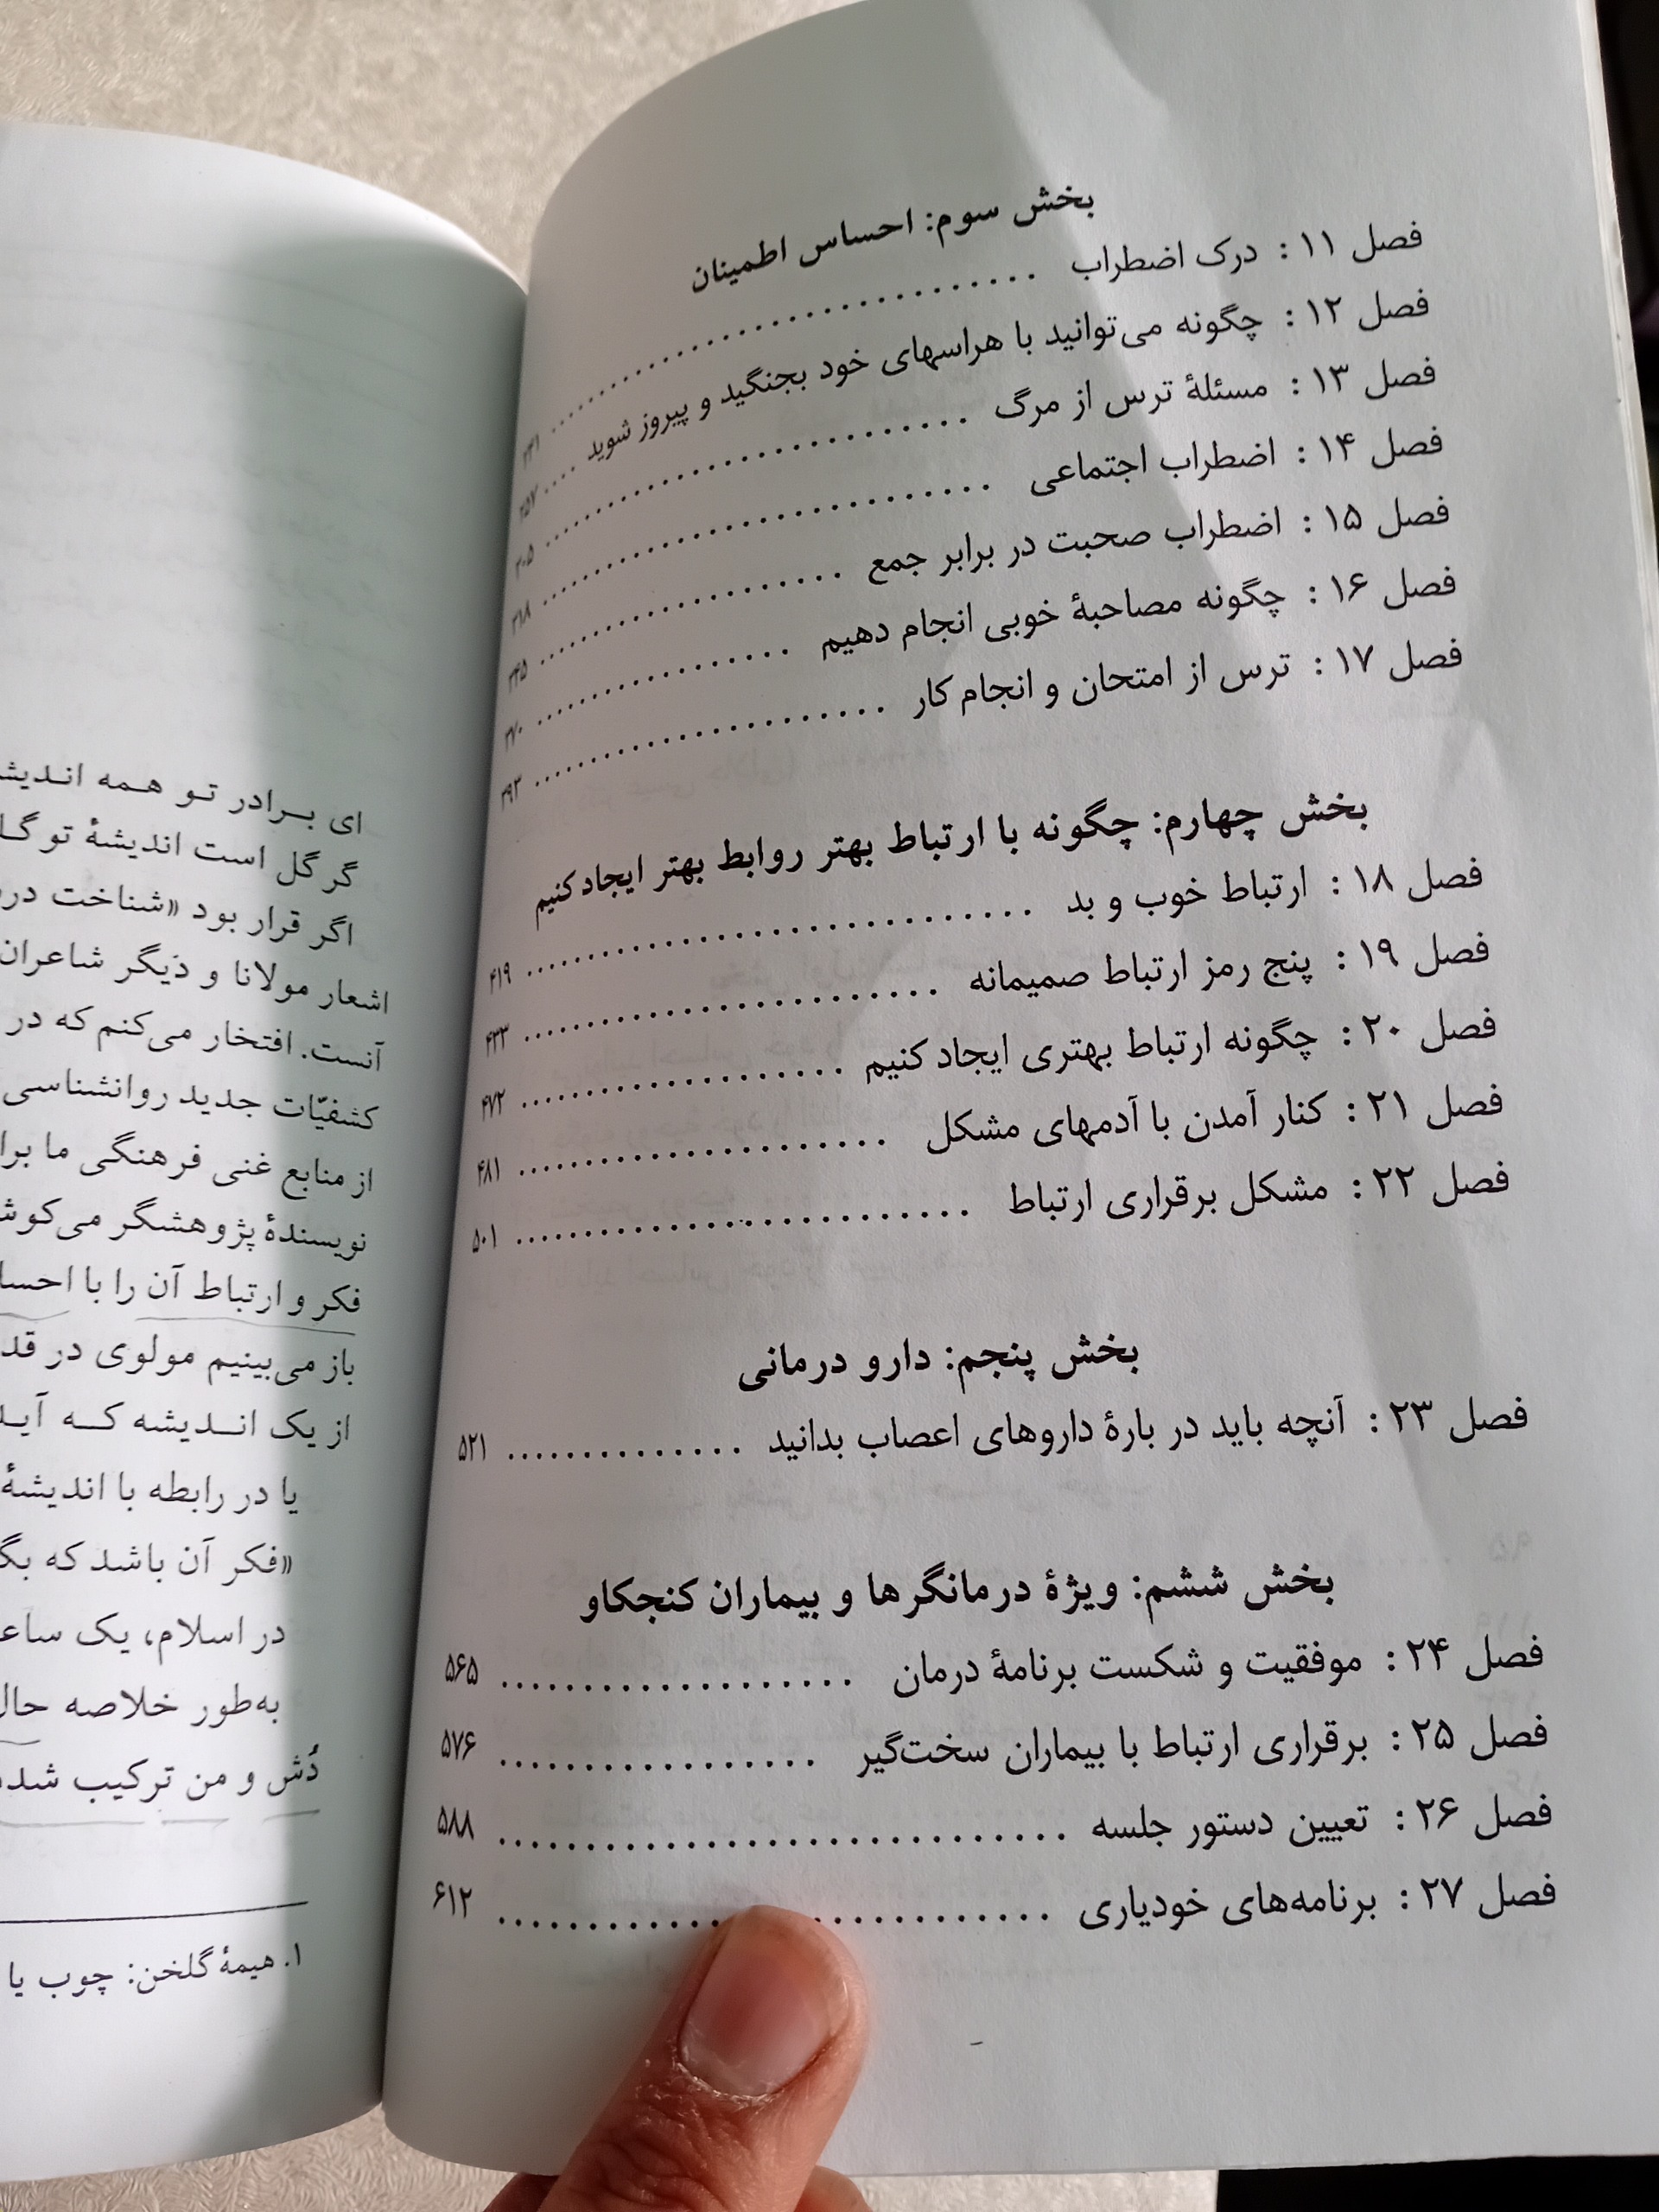 بخش سوم: احساس اطمینان
فصل ۱۱ : درک اضطراب ........................ ۲۳۱
فصل ۱۲ : چگونه می‌توانید با هراسهای خود بجنگید و پیروز شوید .... ۲۵۷
فصل ۱۳ : مسئلهٔ ترس از مرگ ........................
فصل ۱۴ : اضطراب اجتماعی ........................ ۳۱۸
فصل ۱۵ : اضطراب صحبت در برابر جمع ........................ ۳۴۵
فصل ۱۶ : چگونه مصاحبهٔ خوبی انجام دهیم ........................ ۳۷۰
فصل ۱۷ : ترس از امتحان و انجام کار ........................ ۳۹۳
بخش چهارم: چگونه با ارتباط بهتر روابط بهتر ایجاد کنیم
فصل ۱۸ : ارتباط خوب و بد ........................ ۴۱۹
فصل ۱۹ : پنج رمز ارتباط صمیمانه ........................ ۴۳۳
فصل ۲۰ : چگونه ارتباط بهتری ایجاد کنیم ........................ ۴۷۲
فصل ۲۱ : کنار آمدن با آدمهای مشکل ........................ ۴۸۱
فصل ۲۲ : مشکل برقراری ارتباط ........................ ۵۰۱
بخش پنجم: دارو درمانی
فصل ۲۳ : آنچه باید در بارهٔ داروهای اعصاب بدانید .............. ۵۲۱
بخش ششم: ویژهٔ درمانگرها و بیماران کنجکاو
فصل ۲۴ : موفقیت و شکست برنامهٔ درمان .................... ۵۶۵
فصل ۲۵ : برقراری ارتباط با بیماران سخت‌گیر .................. ۵۷۶
فصل ۲۶ : تعیین دستور جلسه ........................ ۵۸۸
فصل ۲۷ : برنامه‌های خودیاری ........................ ۶۱۲
ای بـرادر تـو همـه
گر گل است اندیشهٔ تو
اگر قرار بود «شناخت
اشعار مولانا و دیگر شاعران
آنست. افتخار می‌کنم که در
کشفیّات جدید روانشناسی
از منابع غنی فرهنگی ما
نویسندهٔ پژوهشگر
فکر و ارتباط آن را با
باز می‌بینیم مولوی در
از یک انـدیشه کـه
یا در رابطه با اندیشهٔ
«فکر آن باشد که
در اسلام، یک
به‌طور خلاصه
دُش و من ترکیب
۱. هیمهٔ گلخن: چوب یا